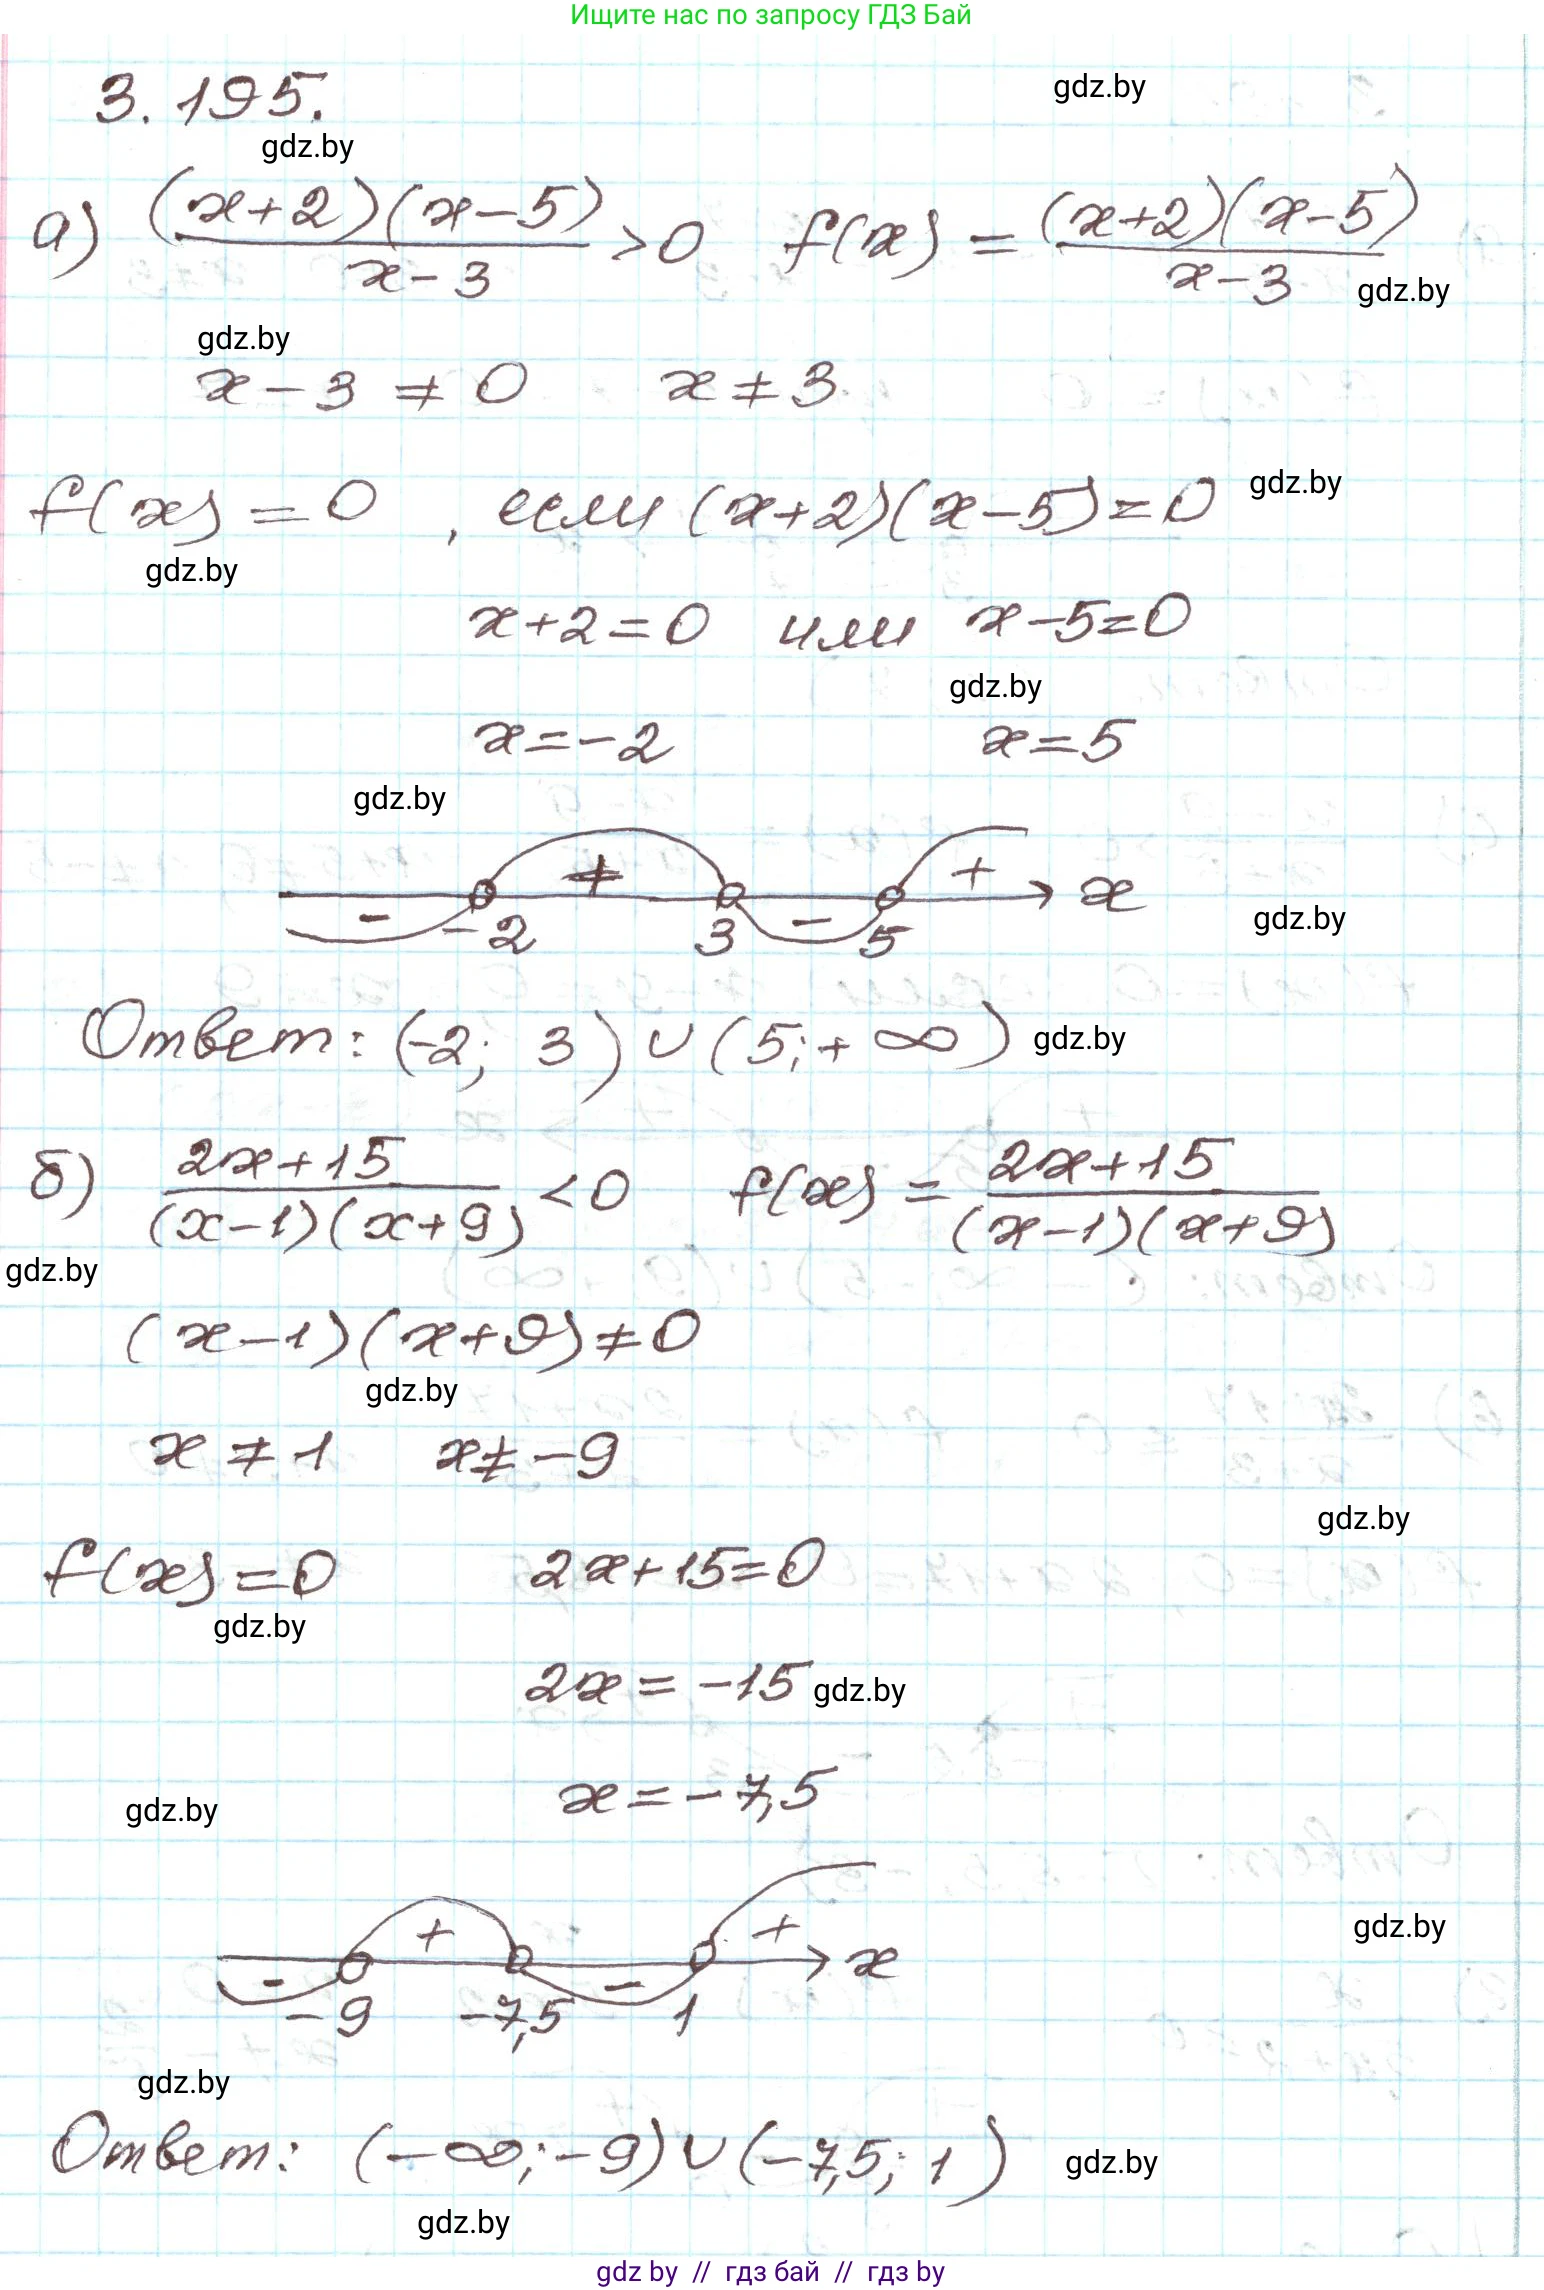 Ищите нас по запросу ГДЗ Бай
3.195.
gdz.by
gdz.by
а) (x+2)(x-5)/(x-3) >0 f(x) = (x+2)(x-5)/(x-3)
gdz.by
gdz.by
x-3 ≠ 0 x ≠ 3
f(x) = 0, если (x+2)(x-5)=0
gdz.by
gdz.by
x+2=0 или x-5=0
gdz.by
x=-2 x=5
gdz.by
- + - + x
-2 3 5
gdz.by
Ответ: (-2; 3) ∪ (5;+∞)
gdz.by
б) (2x+15)/((x-1)(x+9)) <0 f(x) = (2x+15)/((x-1)(x+9))
gdz.by
(x-1)(x+9)≠0
gdz.by
x ≠ 1 x≠-9
gdz.by
f(x)=0 2x+15=0
gdz.by
2x = -15
gdz.by
x=-7,5
gdz.by
- + - + x
gdz.by
-9 -7,5 1
gdz.by
Ответ: (-∞;-9)∪(-7,5; 1)
gdz.by
gdz.by
gdz by // гдз бай // гдз by